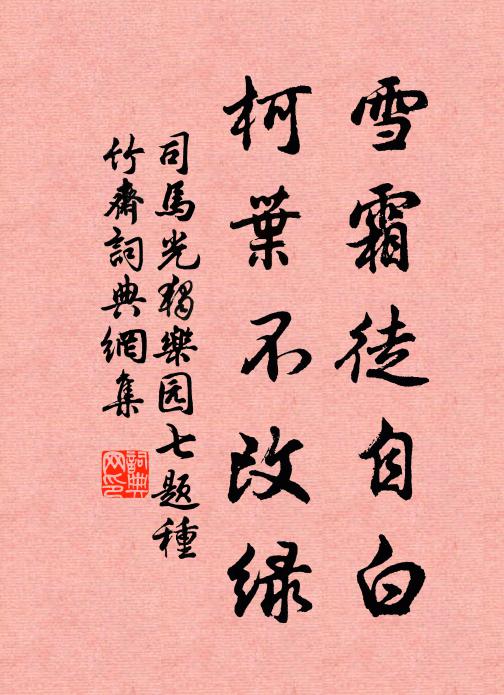 雪霜徒自白
柯葉不改緑
司馬光獨樂园七題種
竹齋詞典網集
詞典
网印